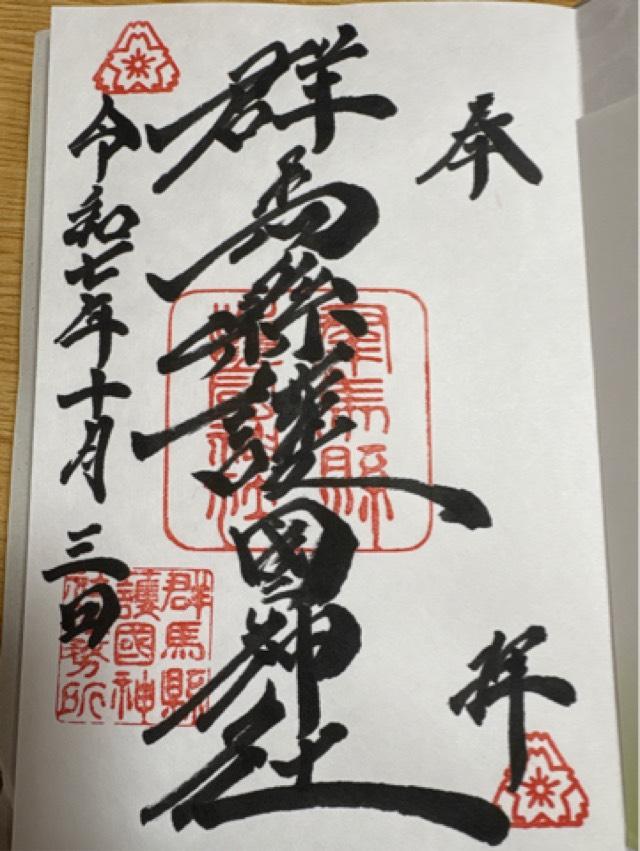 奉拝
群馬縣護國神社
令和七年十月三日
群馬縣
護國神
社務所
群馬縣
護國神社